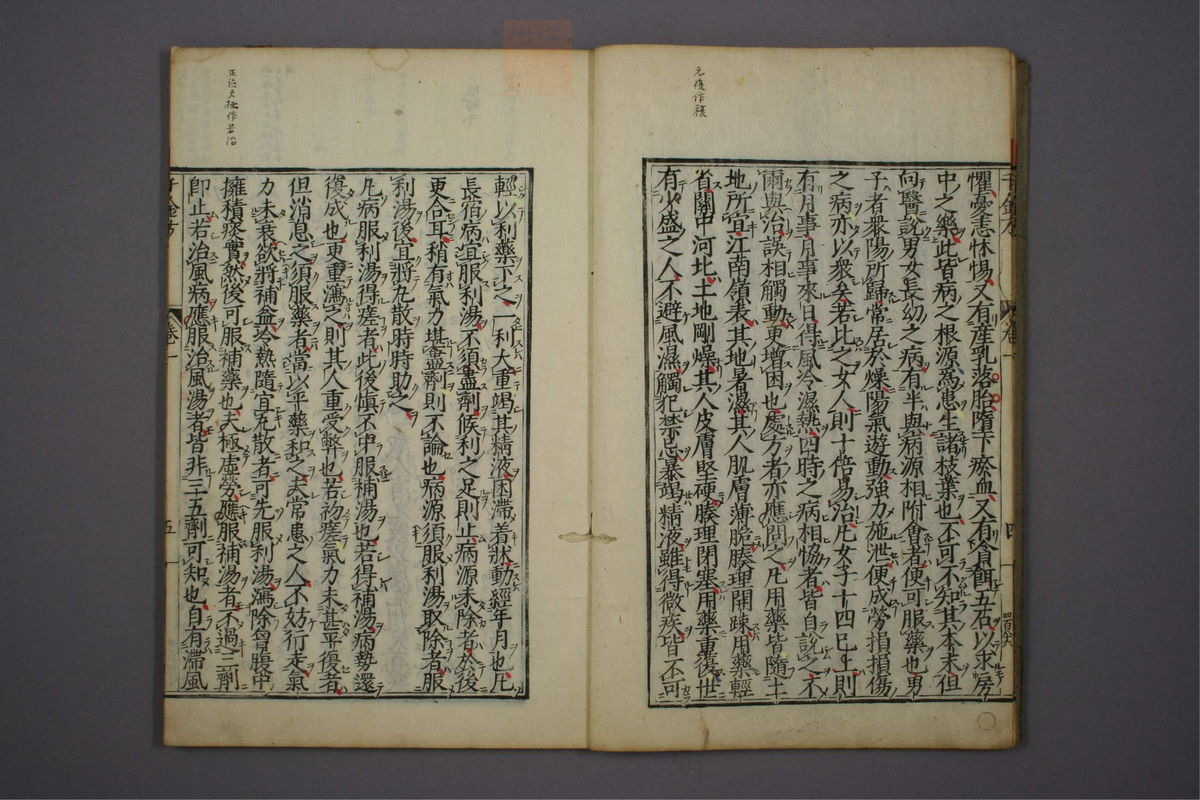 元復作複
懼憂恚怵惕又有産乳落胎墮下瘀血又有貪餌五石以求房
中之樂此皆病之根源為患生諸枝葉也不可不知其本末但
向醫說男女長幼之病有半與病源相附會者便可服藥也男
子者衆陽所歸常居於燥陽氣遊動強力施泄便成勞損損傷
之病亦以衆矣若比之女人則十倍易治凡女子十四已上則
有月事月事來日得風冷濕熱四時之病相協者皆自說之不
爾與治誤相觸動更增困也處方者亦應問之凡用藥皆隨土
地所宜江南嶺表其地暑濕其人肌膚薄脆腠理開疎用藥輕
省關中河北土地剛燥其人皮膚堅硬腠理閉塞用藥重復世
有少盛之人不避風濕觸犯禁忌暴竭精液雖得微疾皆不可
千金方 卷一 四
正道夫秖作若治
輕以利藥下之一利大重竭其精液困滯着牀動經年月也凡
長宿病宜服利湯不須盡劑候利之足則止病源未除者於後
更合耳稍有氣力堪盡劑則不論也病源須服利湯取除者服
利湯後宜將丸散時時助之
凡病服利湯得瘥者此後慎不中服補湯也若得補湯病勢還
復成也更重瀉之則其人重受弊也若初瘥氣力未甚平復者
但消息之須服藥者當以平藥和之夫常患之人不妨行走氣
力未衰欲將補益冷熱隨宜丸散者可先服利湯瀉除胷腹中
擁積痰實然後可服補藥也夫極虛勞應服補湯者不過三劑
即止若治風病應服治風湯者皆非三五劑可知也自有滯風
千金方 卷一 五